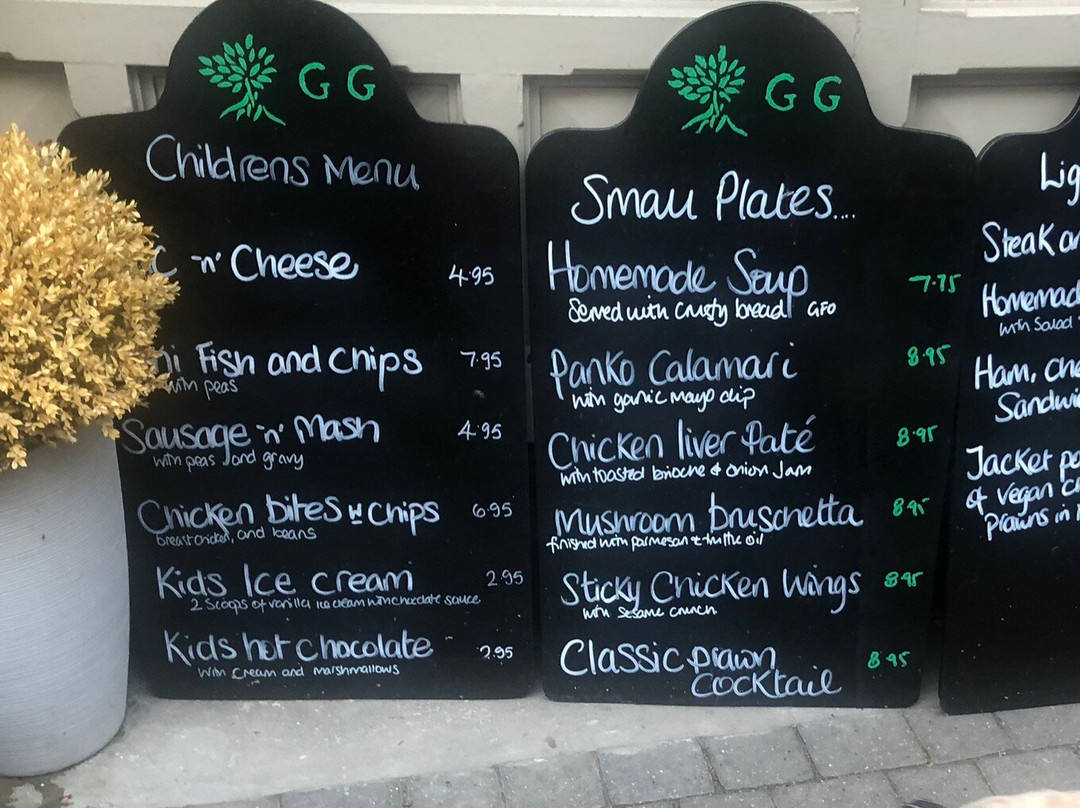 GG
Childrens Menu
'n' Cheese 4.95
Fish and Chips 7.95
with peas
Sausage 'n' Mash 4.95
with peas and gravy
Chicken bites w chips 6.95
breast chicken, and beans
Kids Ice cream 2.95
2 Scoops of vanilla ice cream with chocolate sauce
Kids hot chocolate 2.95
with cream and marshmallows
GG
Small Plates....
Homemade Soup 7.75
Served with crusty bread GFO
Panko Calamari 8.95
with garlic mayo dip
Chicken liver Paté 8.95
with toasted brioche & onion Jam
Mushroom bruschetta 8.95
finished with parmesan & truffle oil
Sticky Chicken Wings 8.95
with sesame crunch
Classic prawn 8.95
cocktail
Lig
Steak
Homemad
with Salad
Ham, che
Sandwi
Jacket po
of vegan
prawns in